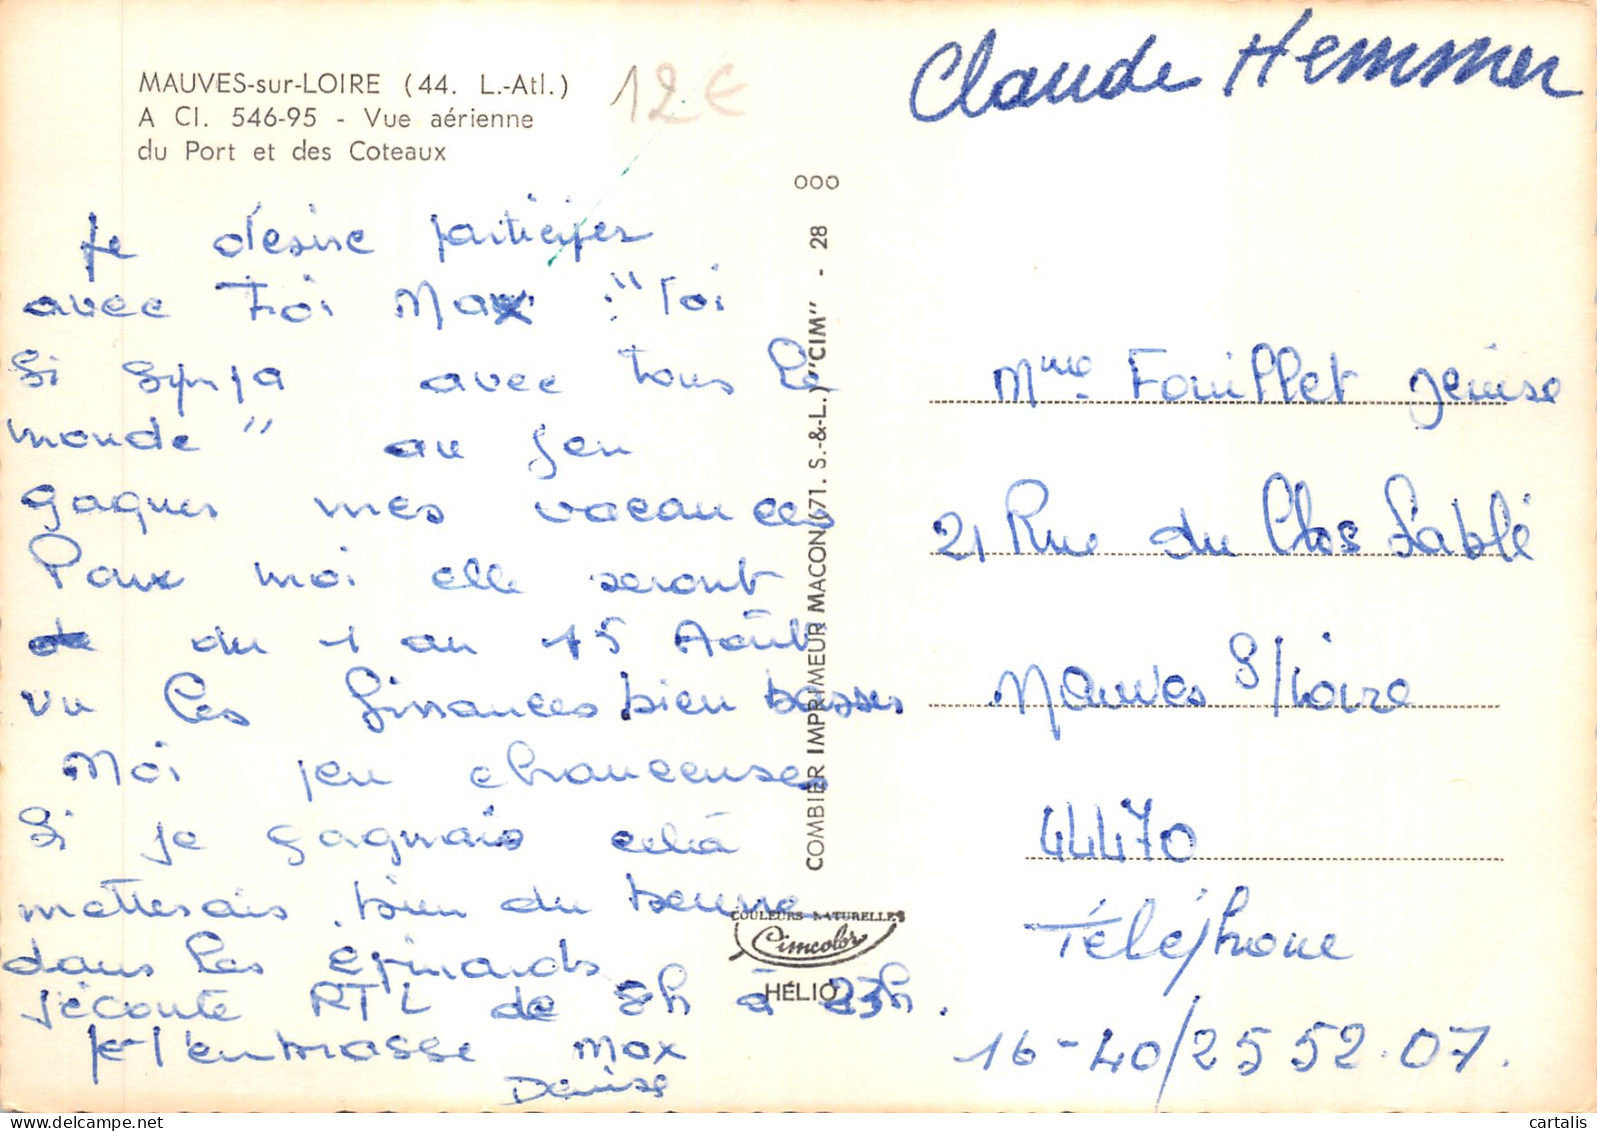 MAUVES-sur-LOIRE (44. L.-Atl.)
A Cl. 546-95 - Vue aérienne
du Port et des Coteaux
12€
Claude Hemmer
Je désire participer
avec Toi Max : "Toi
Si Sympa avec tous le
monde" au Jeu
gagner mes vacances
Pour moi elle seront
du 1 au 15 Août
vu les finances bien basses
Moi peu chanceuses
Si je gagnais celà
metterais bien du beurre
dans les épinards
J'écoute RTL de 8h à 23h.
Je t'embrasse Max
Denise
COMBIER IMPRIMEUR MACON (71. S.-&-L.) "CIM" - 28
000
COULEURS NATURELLES
Cimcolor
HÉLIO
Mme Fouillet Denise
21 Rue du Clos Sablé
Mauves S/Loire
44470
Téléphone
16-40/25 52.07.
cartalis